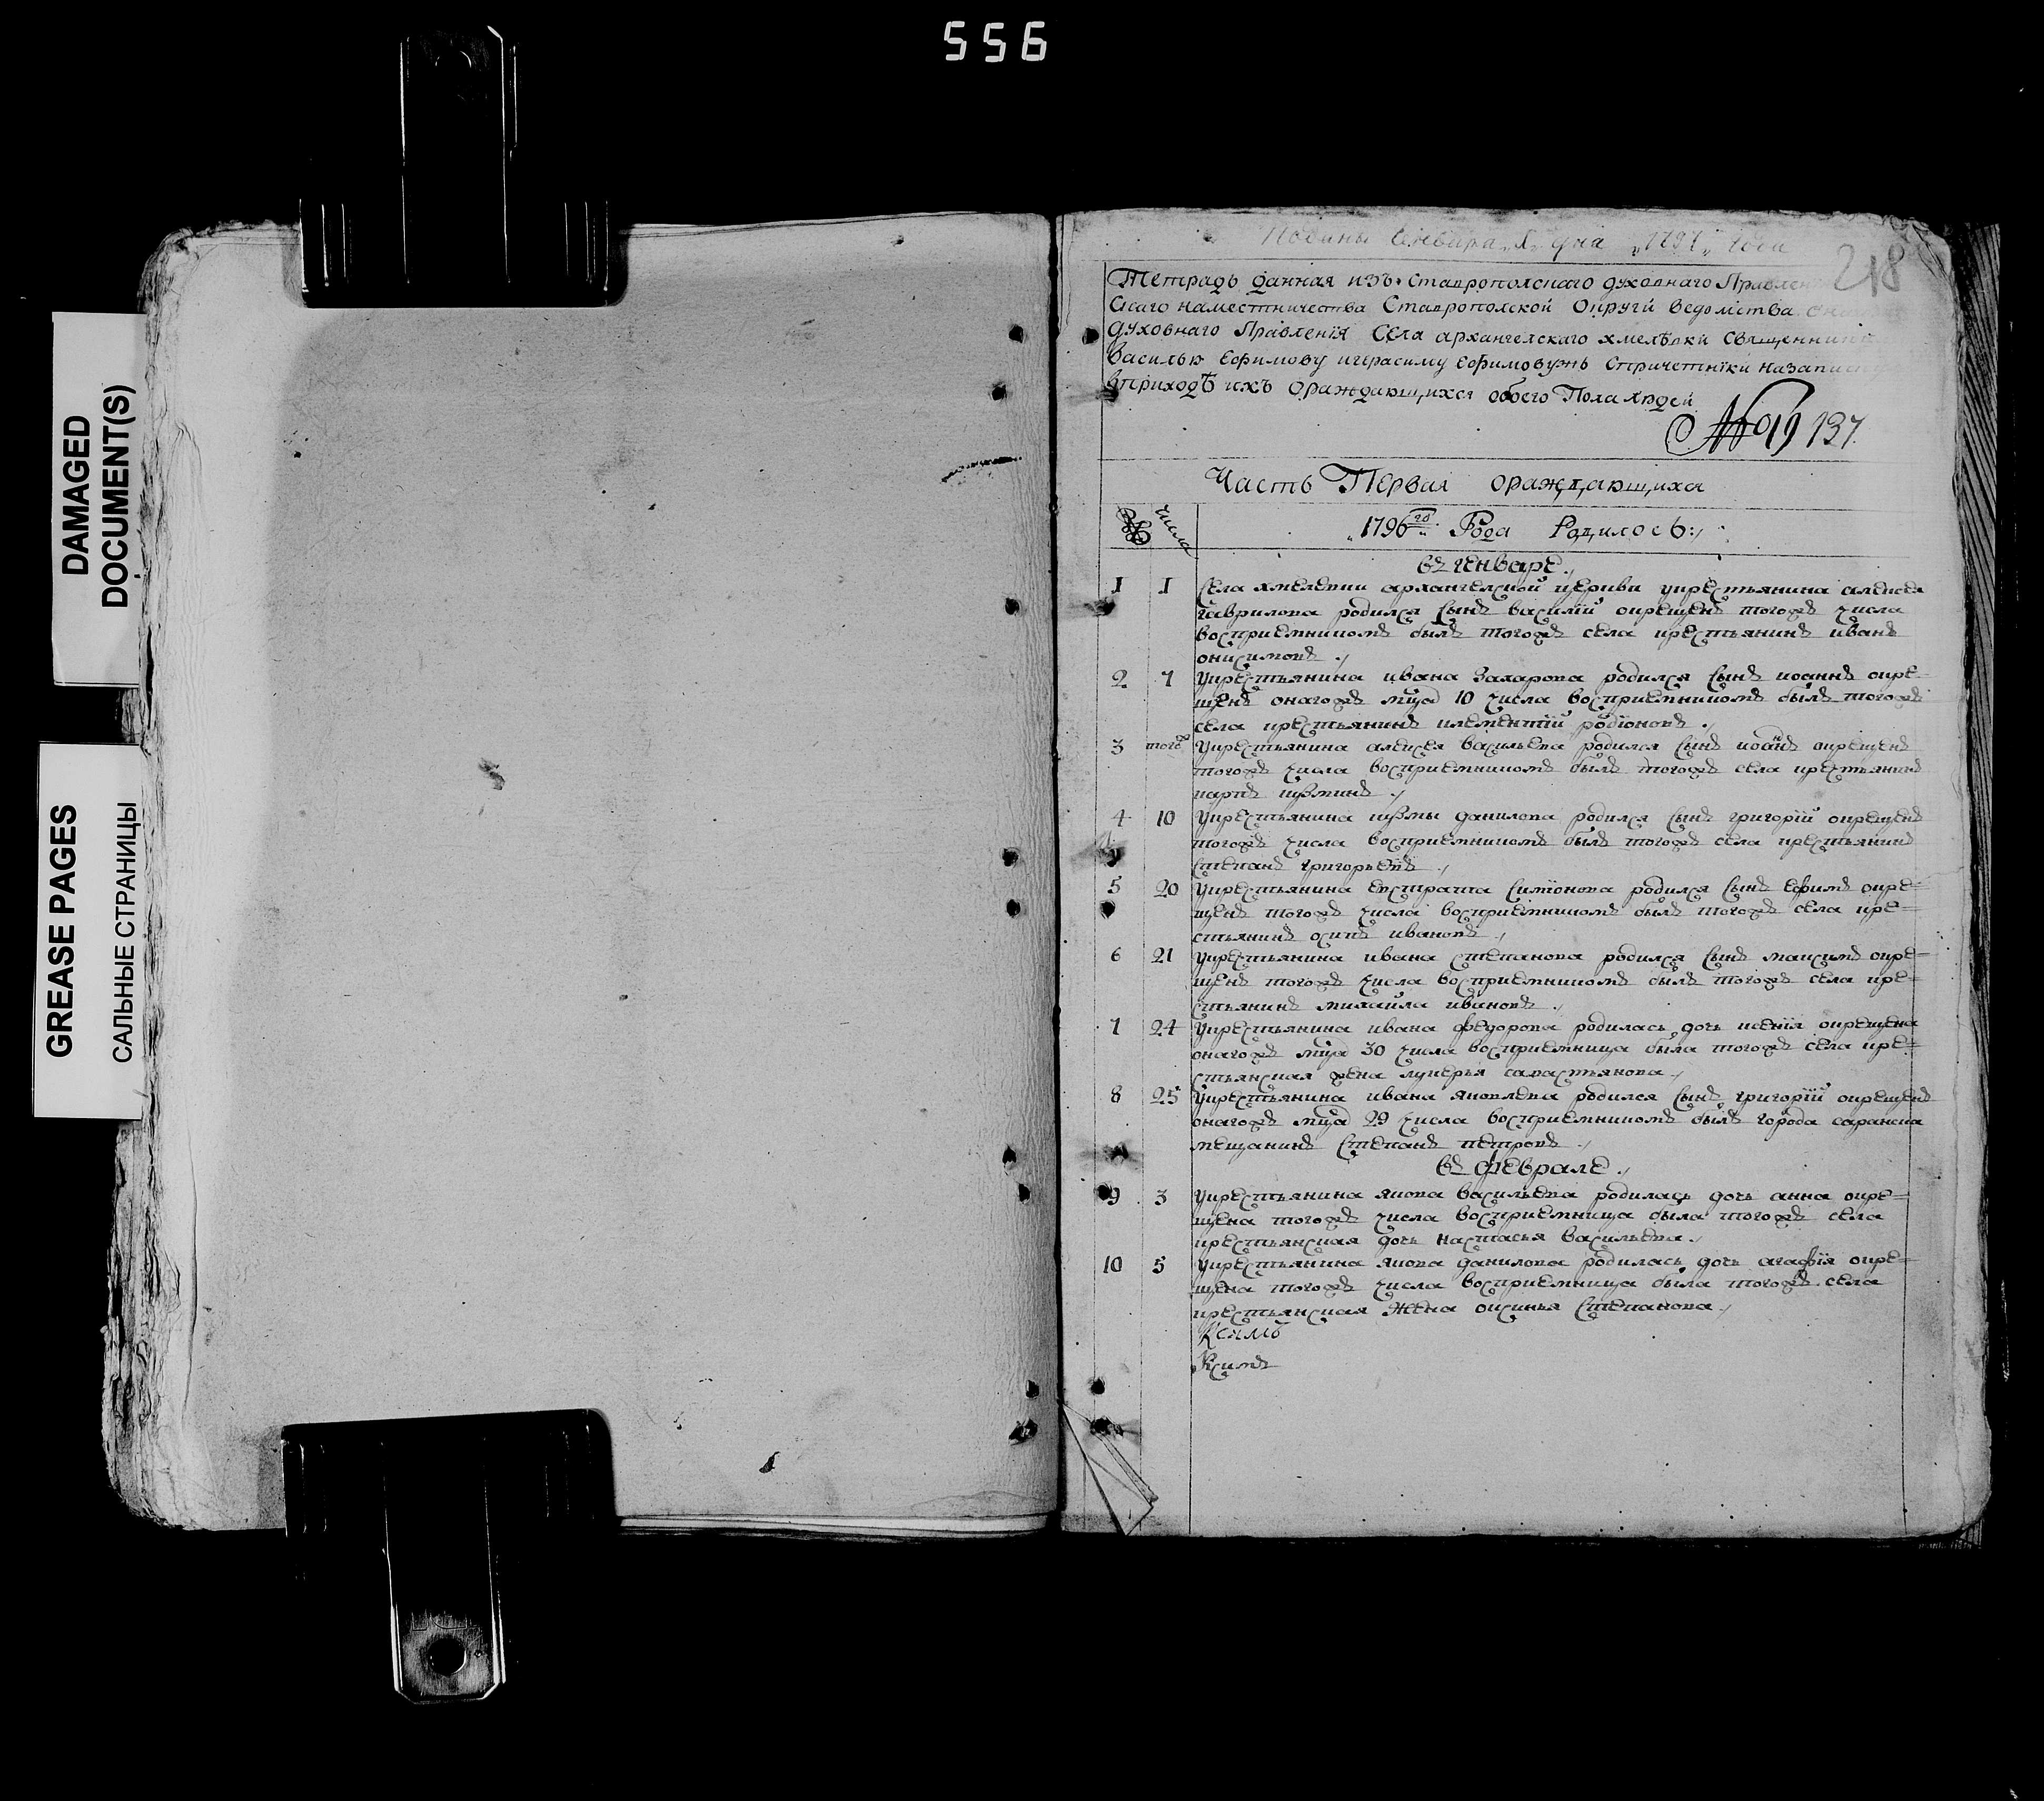 556
DAMAGED
DOCUMENT(S)
GREASE PAGES
САЛЬНЫЕ СТРАНИЦЫ
Генваря 1 дня 1797 года
218
Тетрадь данная изъ Ставрополскаго духовнаго Правлен
скаго наместничества Ставрополской округи ведомства
духовнаго Правленїя Села архангелскаго хмелѣвки Священник
Василью Ефимову игерасиму Ефимовужъ Спричетнїки Назапис
вприходѣ ихъ ораждающихся обоего Пола людей
№ 99 137
Часть Первая ораждающихся
№ числа
1796го Года Родилось
въ генваре
1 1 села хмелевки архангелской церкви укрестьянина алексея
гаврилова родился сынъ василїй окрещенъ тогожъ числа
восприемникомъ былъ тогожъ села крестьянинъ иванъ
онисимовъ
2 7 укрестьянина ивана захарова родился сынъ иоаннъ окре-
щенъ онагожъ мца 10 числа восприемникомъ былъ тогожъ
села крестьянинъ клементїй родїоновъ
3 тогож укрестьянина алексея васильева родился сынъ иоанъ окрещенъ
тогожъ числа восприемникомъ былъ тогожъ села крестьянинъ
карпъ кузминъ
4 10 укрестьянина кузмы данилова родился сынъ григорїй окрещенъ
тогожъ числа восприемникомъ былъ тогожъ села крестьянинъ
степанъ григорьевъ
5 20 укрестьянина евстрата симїонова родился сынъ ефимъ окре=
щенъ тогожъ числа восприемникомъ былъ тогожъ села кре=
стьянинъ осипъ ивановъ
6 21 укрестьянина ивана степанова родился сынъ максимъ окре=
щенъ тогожъ числа восприемникомъ былъ тогожъ села кре=
стьянинъ михайла ивановъ
7 24 укрестьянина ивана федорова родилась дочь ксенїя окрещена
онагожъ мца 30 числа восприемница была тогожъ села кре=
стьянская жена лукерья савастьянова
8 25 укрестьянина ивана яковлева родился сынъ григорїй окрещенъ
онагожъ мца 29 числа восприемникомъ былъ города саранска
мещанинъ степанъ петровъ
въ феврале
9 3 укрестьянина якова васильева родилась дочь анна окре=
щена тогожъ числа восприемница была тогожъ села
крестьянская дочь настасья васильева
10 5 укрестьянина якова данилова родилась дочь агафїя окре=
щена тогожъ числа восприемница была тогожъ села
крестьянская жена оксинья степанова
Ксимъ